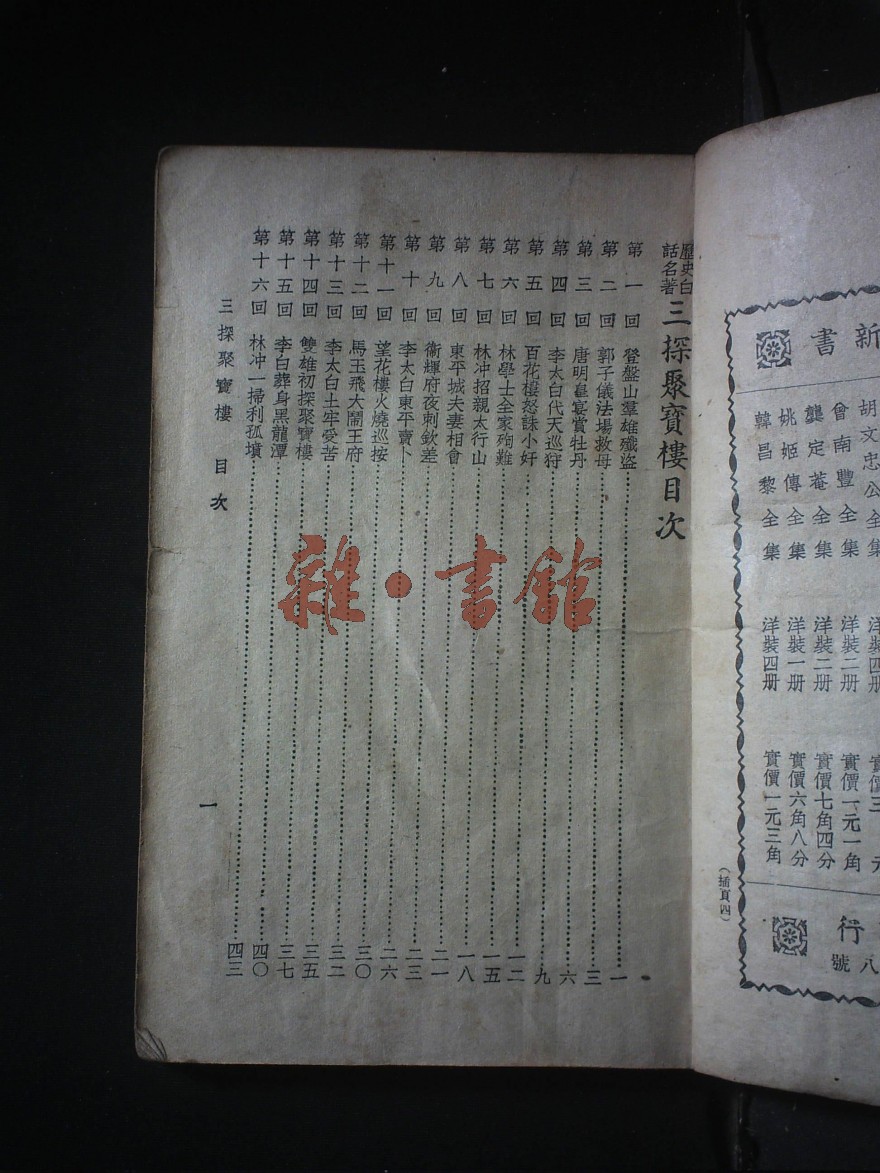 新書
胡文忠公全集 洋裝四册 實價三 元
曾南豐全集 洋裝二册 實價一元一角
龔定菴全集 洋裝二册 實價七角四分
姚姬傳全集 洋裝一册 實價六角八分
韓昌黎全集 洋裝四册 實價一元三角
行
八號
(插頁四)
歷史白話名著 三探聚寶樓目次
第一回 登盤山羣雄殲盜 一
第二回 郭子儀法場救母 三
第三回 唐明皇宴賞牡丹 六
第四回 李太白代天巡狩 九
第五回 百花樓怒誅小奸 一二
第六回 林學士全家殉難 一五
第七回 林冲招親太行山 一八
第八回 東平城夫妻相會 二一
第九回 衞輝府夜刺欽差 二三
第十回 李太白東平賣卜 二六
第十一回 望花樓火燒巡按 三〇
第十二回 馬玉飛大鬧王府 三二
第十三回 李太白土牢受苦 三五
第十四回 雙雄初探聚寶樓 三七
第十五回 李白葬身黑龍潭 四〇
第十六回 林冲一掃利孤墳 四三
三探聚寶樓 目次
一
雜·書館